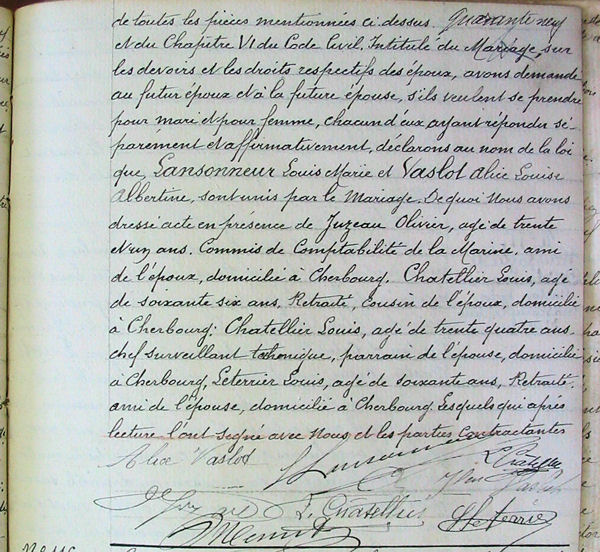 de toutes les pièces mentionnées ci-dessus. Quarante neuf
et du Chapitre VI du Code Civil, Intitulé du Mariage, sur
les devoirs et les droits respectifs des époux, avons demandé
au futur époux et à la future épouse, s'ils veulent se prendre
pour mari et pour femme, chacun d'eux ayant répondu sé-
parément et affirmativement, déclarons au nom de la loi
que, Lansonneur Louis Marie et Vaslot Alice Louise
Albertine, sont unis par le Mariage. De quoi Nous avons
dressé acte en présence de Juzeau Olivier, agé de trente
et un ans, Commis de Comptabilité de la Marine, ami
de l'époux, domicilié à Cherbourg. Chatellier Louis, agé
de soixante six ans, Retraité, cousin de l'époux, domicilié
à Cherbourg; Chatellier Louis, agé de trente quatre ans
chef surveillant technique, parrain de l'épouse, domicilié
à Cherbourg, Leterrier Louis, agé de soixante ans, Retraité,
ami de l'épouse, domicilié à Cherbourg. Lesquels qui après
lecture l'ont signé avec Nous et les parties contractantes
Alice Vaslot
L. Chatellier